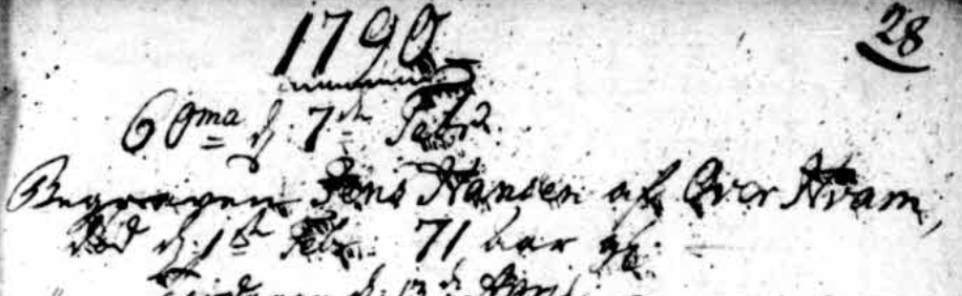 1790
28
60ma d. 7de Febr
Begraven Jens Hansen af Over Hvam,
død d. 1ste Febr. 71 aar gl.
d. 13 de April